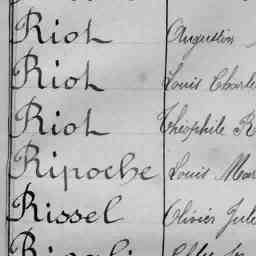 Riot Augustin
Riot Louis Charle
Riot Théophile R
Ripoche Louis Mar
Rissel Olivier Jule